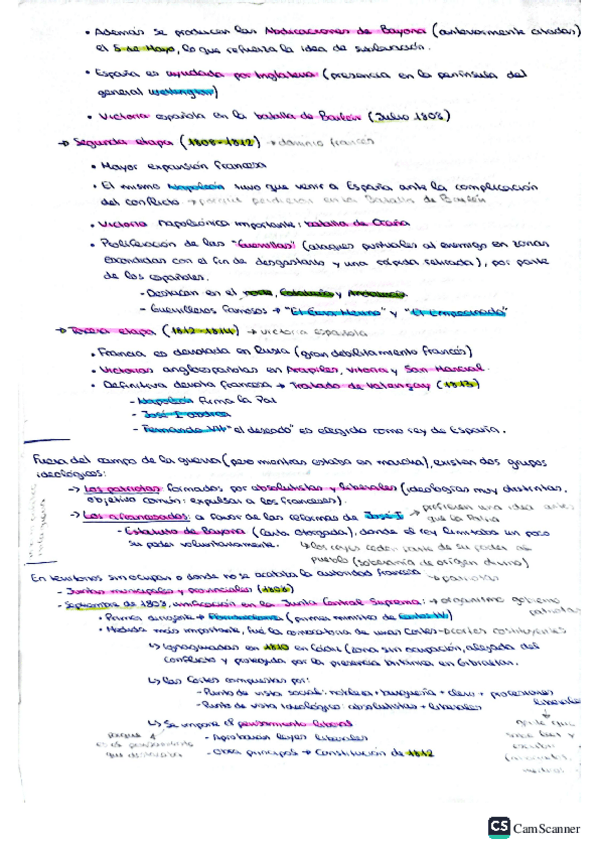 • Además se producen las Abdicaciones de Bayona (anteriormente citadas)
el 5 de Mayo, lo que refuerza la idea de sublevación.
• España es ayudada por Inglaterra (presencia en la península del
general Wellington)
• Victoria española en la batalla de Bailén (Julio 1808)
→ Segunda etapa (1808-1812) → dominio francés
• Mayor expansión francesa
• El mismo Napoleón tuvo que venir a España ante la complicación
del conflicto → porque perdieron en la Batalla de Bailén
• Victoria napoleónica importante: batalla de Ocaña
• Proliferación de las "Guerrillas" (ataques puntuales al enemigo en zonas
escondidas con el fin de desgastarlo y una rápida retirada), por parte
de los españoles.
- Destacan en el norte, Cataluña y Andalucía.
- Guerrilleros famosos → "El Cura Merino" y "El Empecinado"
→ Tercera etapa (1812-1814) → victoria española
• Francia es derrotada en Rusia (gran debilitamiento francés)
• Victorias angloespañolas en Arapiles, Vitoria y San Marcial.
• Definitiva derrota francesa → Tratado de Valençay (1813)
- Napoleón firma la Paz
- José I abdica
- Fernando VII "el deseado" es elegido como rey de España.
Fuera del campo de la guerra (pero mientras estaba en marcha), existen dos grupos
ideológicos:
→ Los patriotas formados por absolutistas y liberales (ideologías muy distintas,
objetivo común: expulsar a los franceses).
→ Los afrancesados: a favor de las reformas de José I → prefieren una idea antes
que la Patria
- Estatuto de Bayona (Carta otorgada), donde el rey limitaba un poco
su poder voluntariamente. ↳ los reyes ceden parte de su poder al
pueblo (soberanía de origen divino)
En territorios sin ocupar o donde no se acataba la autoridad francesa → patriotas
- Juntas municipales y provinciales (1808)
- Septiembre de 1808, unificación en la Junta Central Suprema: → organismo gobierno
patriotas
• Primer dirigente → Floridablanca (primer ministro de Carlos IV)
• Medida más importante, fue la convocatoria de unas Cortes → Cortes constituyentes
↳ Inauguradas en 1810 en Cádiz (zona sin ocupación, alejada del
conflicto y protegida por la presencia británica en Gibraltar.
↳ Las Cortes compuestas por:
- Punto de vista social: nobleza + burguesía + clero + profesiones
liberales
- Punto de vista ideológico: absolutistas + liberales
↳ Se impone el pensamiento liberal
- Aprobaron leyes liberales
- Obra principal → Constitución de 1812
porque
es el pensamiento
que
gente que
sabe leer y
escribir
médicos
CS CamScanner